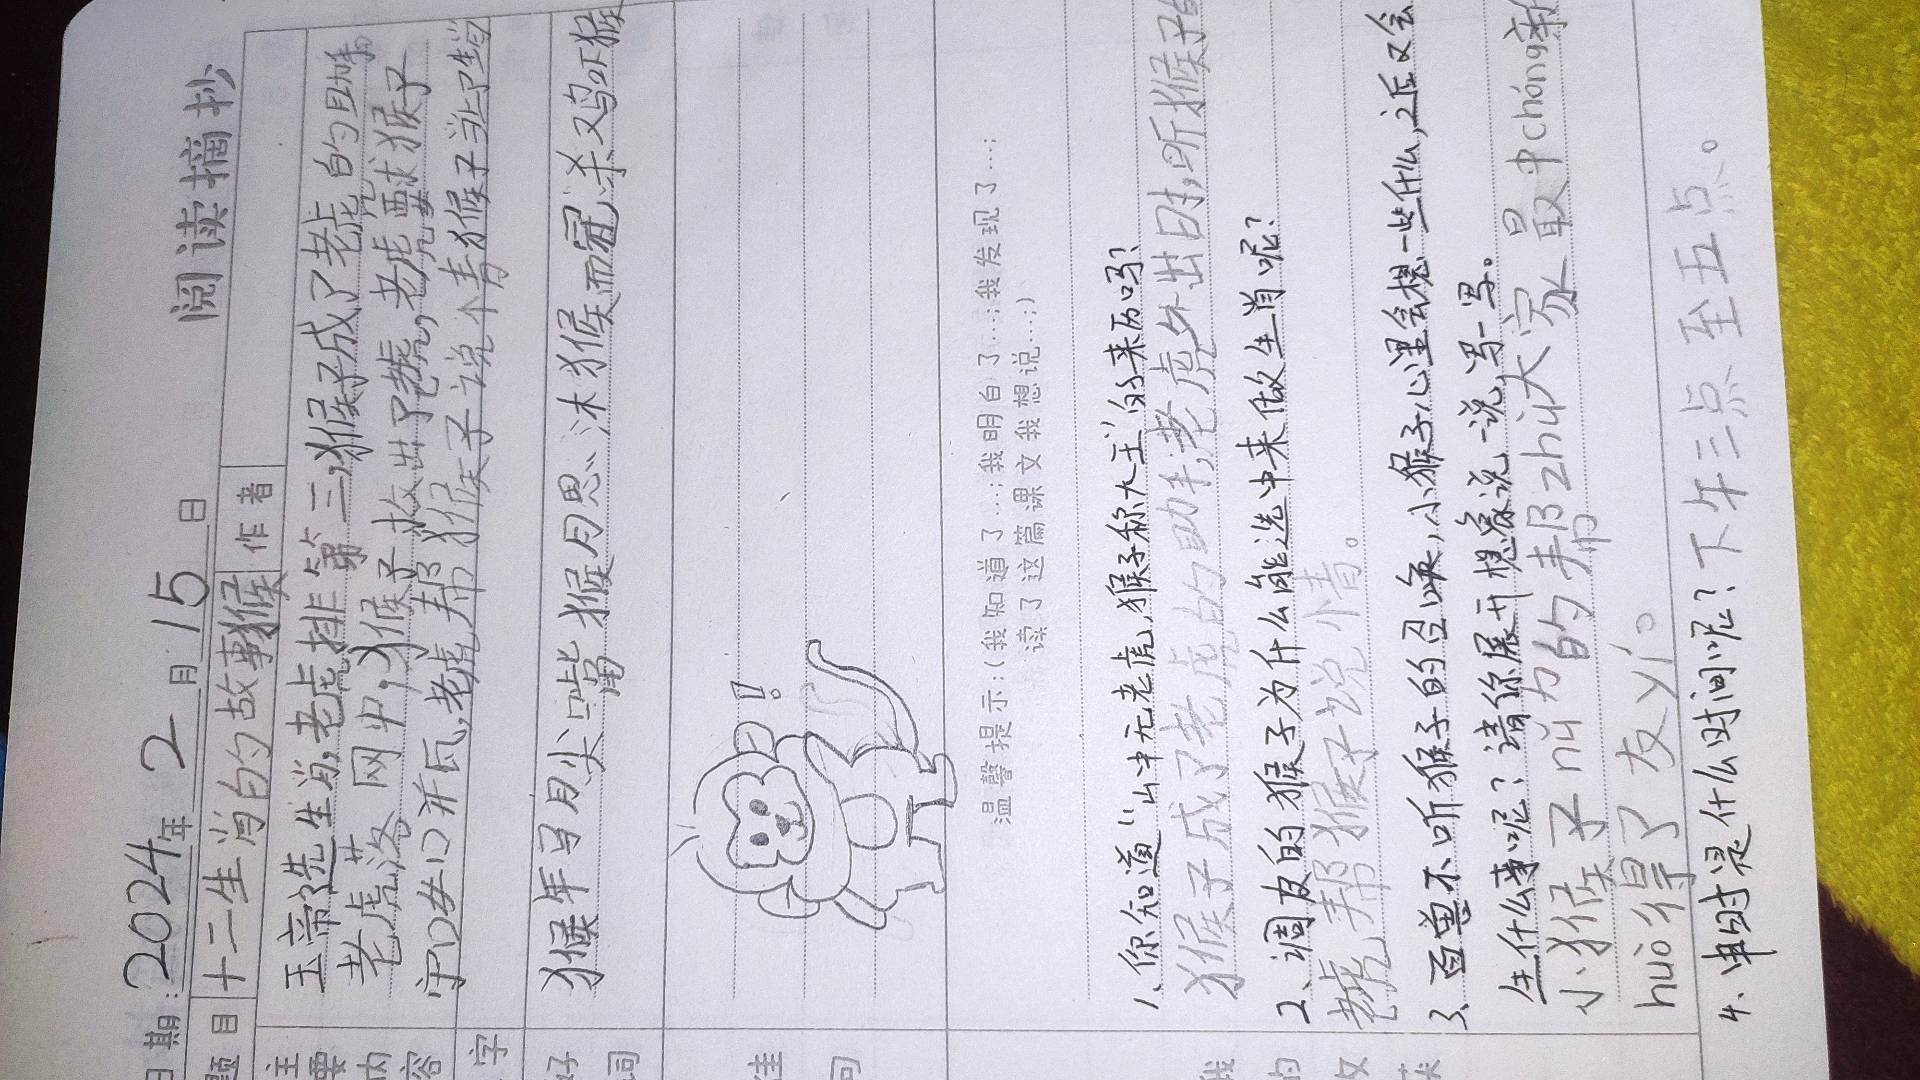 阅读摘抄
日期：2024年2月15日
题目 十二生肖的故事猴 作者
主要内容
玉帝选生肖，老虎排第三，猴子成了老虎的助手
老虎落网中，猴子救出了老虎，老虎要求猴子
守口如口并瓦，老虎帮猴子说个青猴子当了
字
好词
猴年马月 尖嘴猴 沐猴而冠 杀鸡吓猴
佳句
温馨提示：（我知道了…；我明白了…；我发现了…；
读了这篇课文我想说…；）
我的收获
1、你知道“山中无老虎，猴子称大王”的来历吗？
猴子成了老虎的助手，老虎外出时，听猴子的
2、调皮的猴子为什么能选中来做生肖呢？
老虎帮猴子说情。
3、百兽不听猴子的召唤，小猴子心里会想一些什么，还又会
生什么事呢？请你展开想象说一说，写一写。
小猴子nǔ力的帮zhù大家最中chóng新
huò得了友yí。
4、申时是什么时间呢？下午三点至五点。